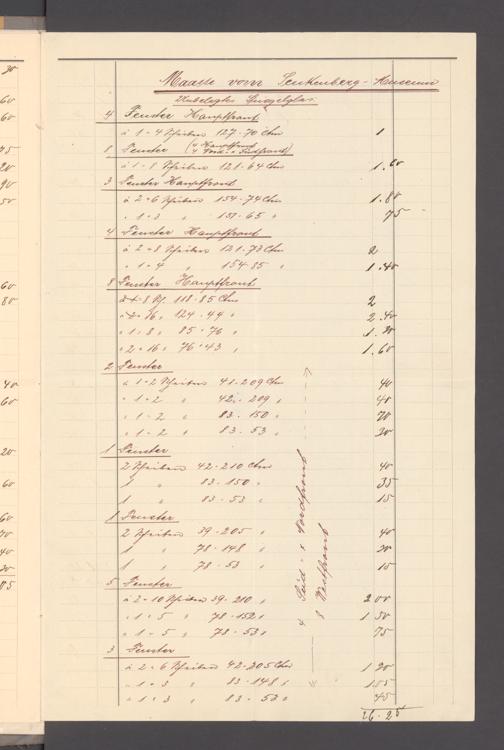 Maasse vom Senkenberg-Museum
Unbelegtes Spiegelglas
4 Fenster Hauptfront
à 1 = 4 Scheiben 127 · 70 Ctm 1
8 Fenster (4 Hauptfront 4 Nord- u Südfront)
à 1 = 8 Scheiben 121 · 64 Ctm 1.60
3 Fenster Hauptfront
à 2 = 6 Scheiben 154 · 74 Ctm 1.80
" 1 = 3 " 151 · 65 " 75
4 Fenster Hauptfront
à 2 = 8 Scheiben 121 · 73 Ctm 2
" 1 = 4 " 154 · 85 " 1.40
8 Fenster Hauptfront
8 Sch. 118 · 85 Ctm 2
" 2 = 16 " 124 · 44 " 2.40
" 1 = 8 " 85 · 76 " 1.20
" 2 = 16 " 76 · 43 " 1.60
2 Fenster
à 1 = 2 Scheiben 41 · 209 Ctm 40
" 1 = 2 " 42 · 209 " 40
" 1 = 2 " 83 · 150 " 70
" 1 = 2 " 83 · 53 " 30
1 Fenster
2 Scheiben 42 · 210 Ctm 40
1 " 83 · 150 " 35
1 " 83 · 53 " 15
1 Fenster
2 Scheiben 39 · 205 " 40
1 " 78 · 148 " 30
1 " 78 · 53 " 15
5 Fenster
à 2 = 10 Scheiben 39 · 210 " 2 00
" 1 = 5 " 78 · 152 " 1 50
" 1 = 5 " 78 · 53 " 75
3 Fenster
à 2 = 6 Scheiben 42 · 205 Ctm 1 20
" 1 = 3 " 83 · 148 " 1 05
" 1 = 3 " 83 · 53 " 45
26.25
4 Süd- u Nordfront
8 Westfront